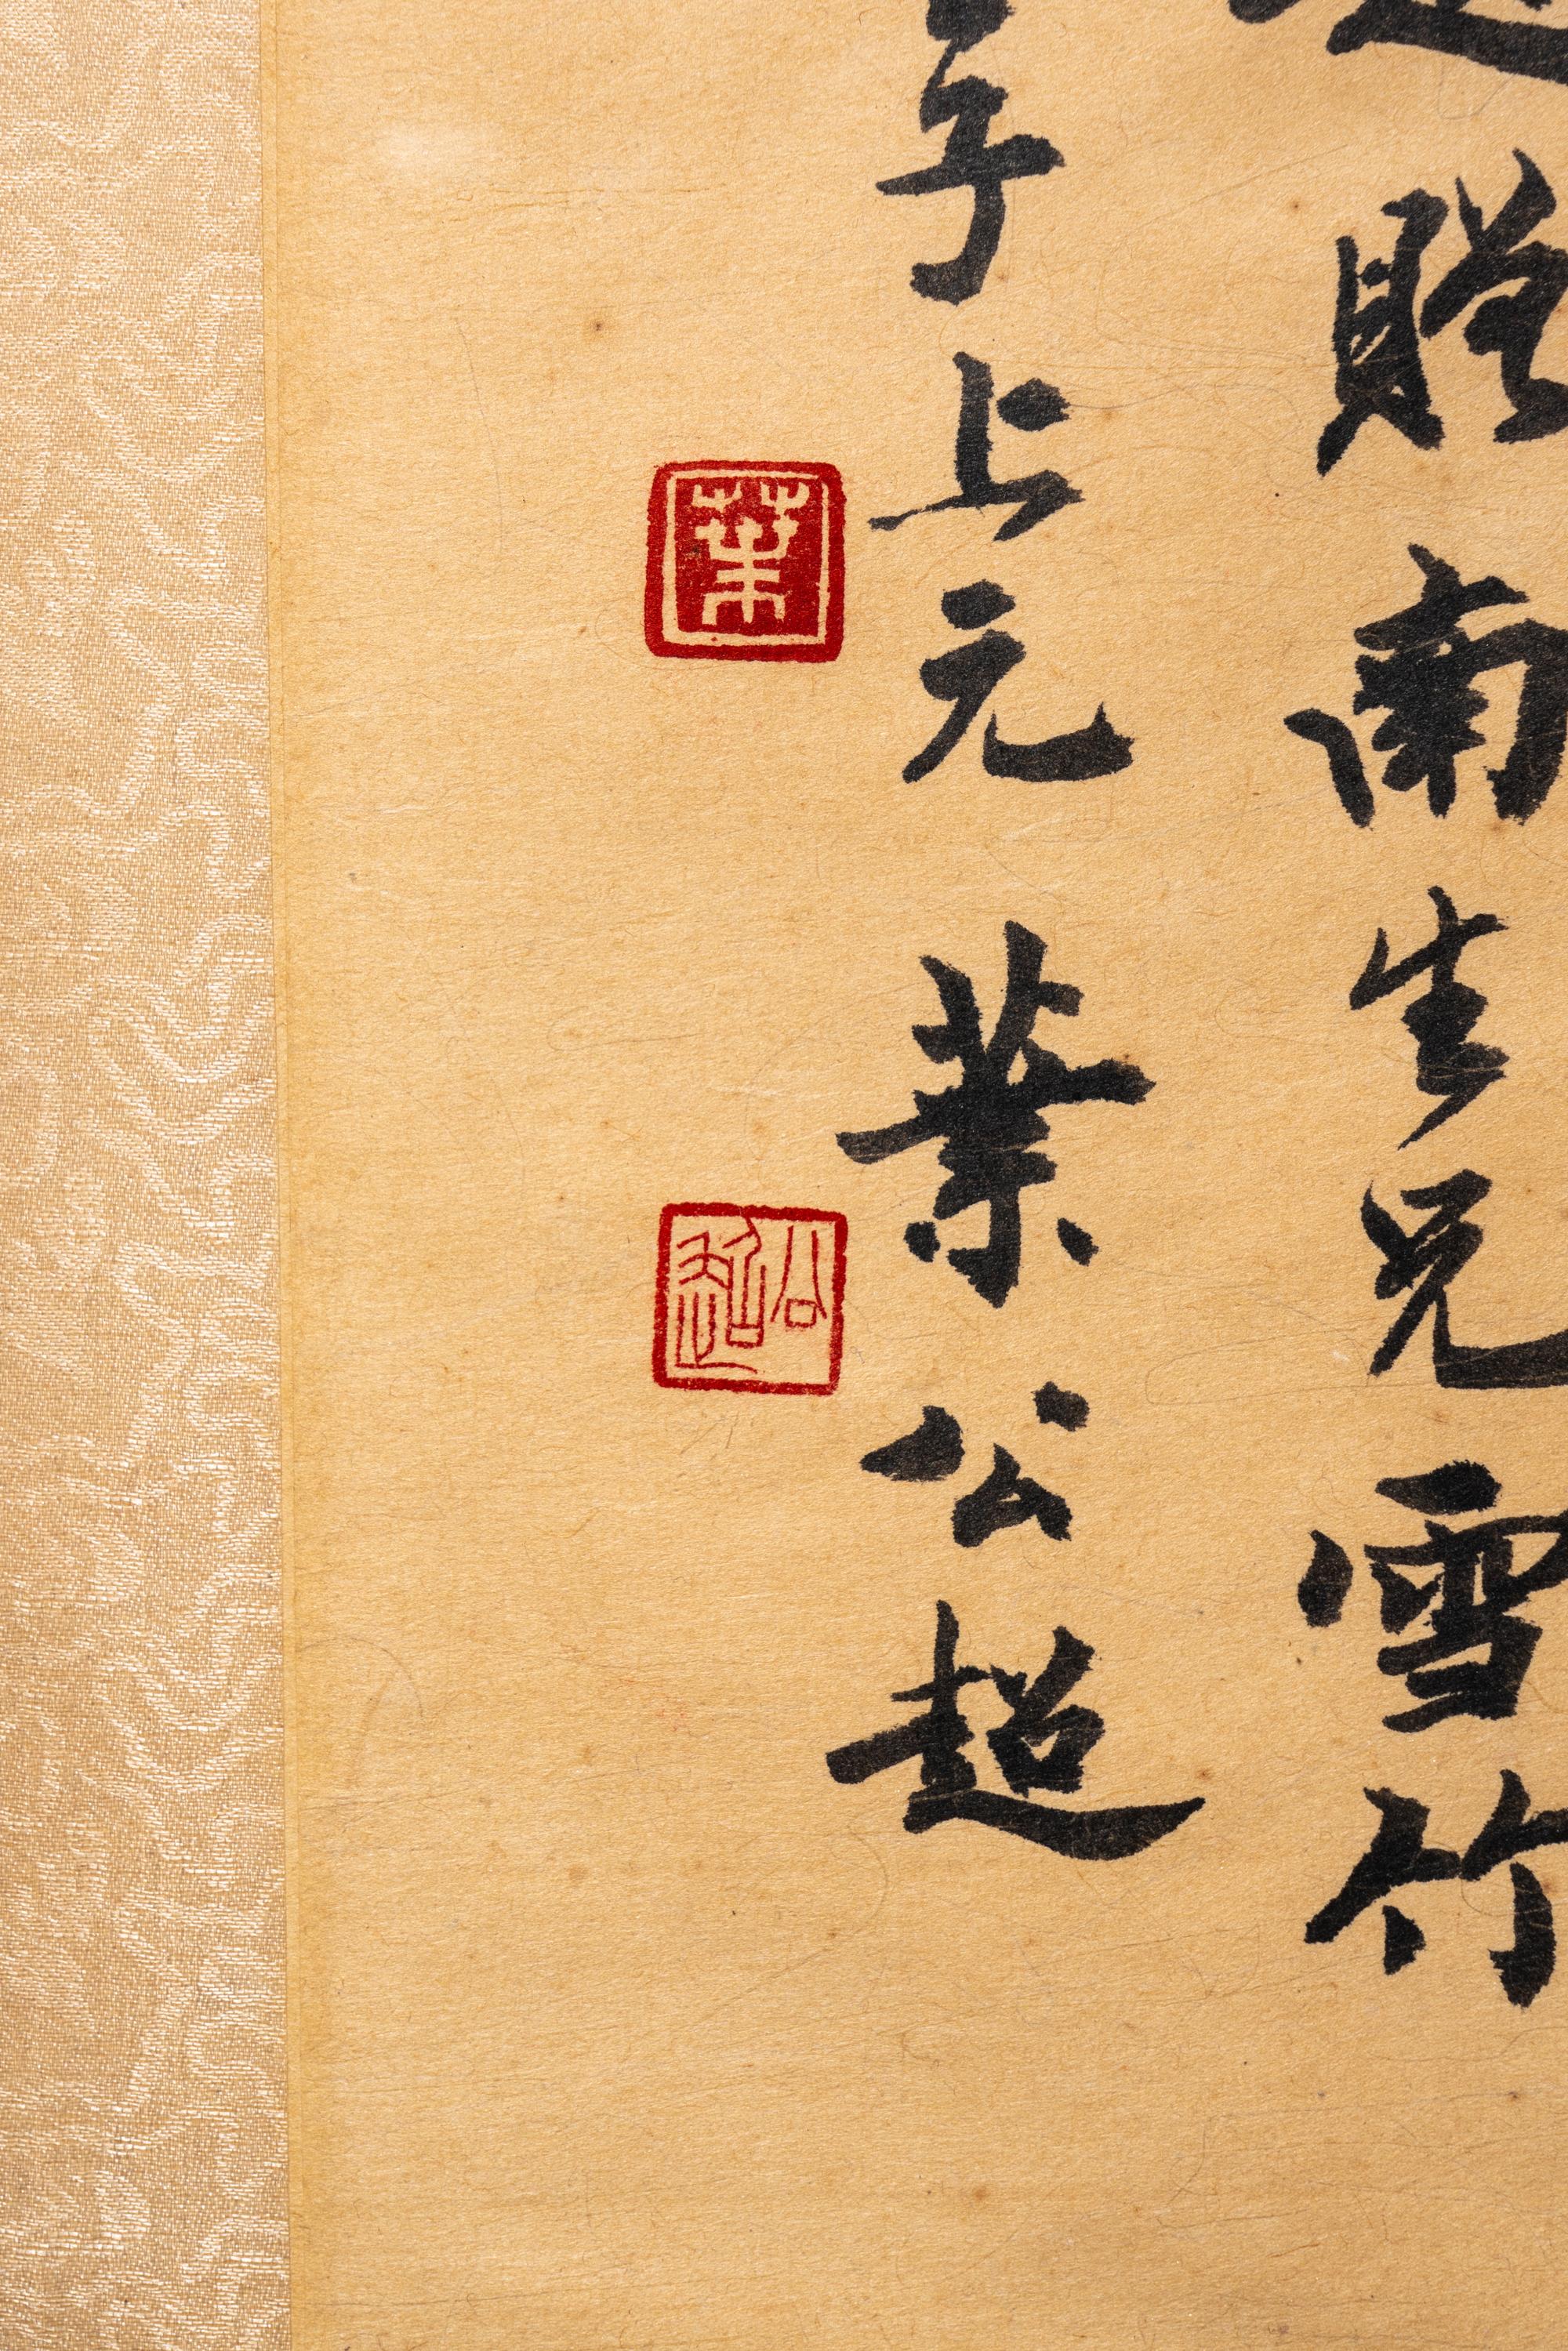 贈南生兄雪竹
子上元 葉公超
葉
公超